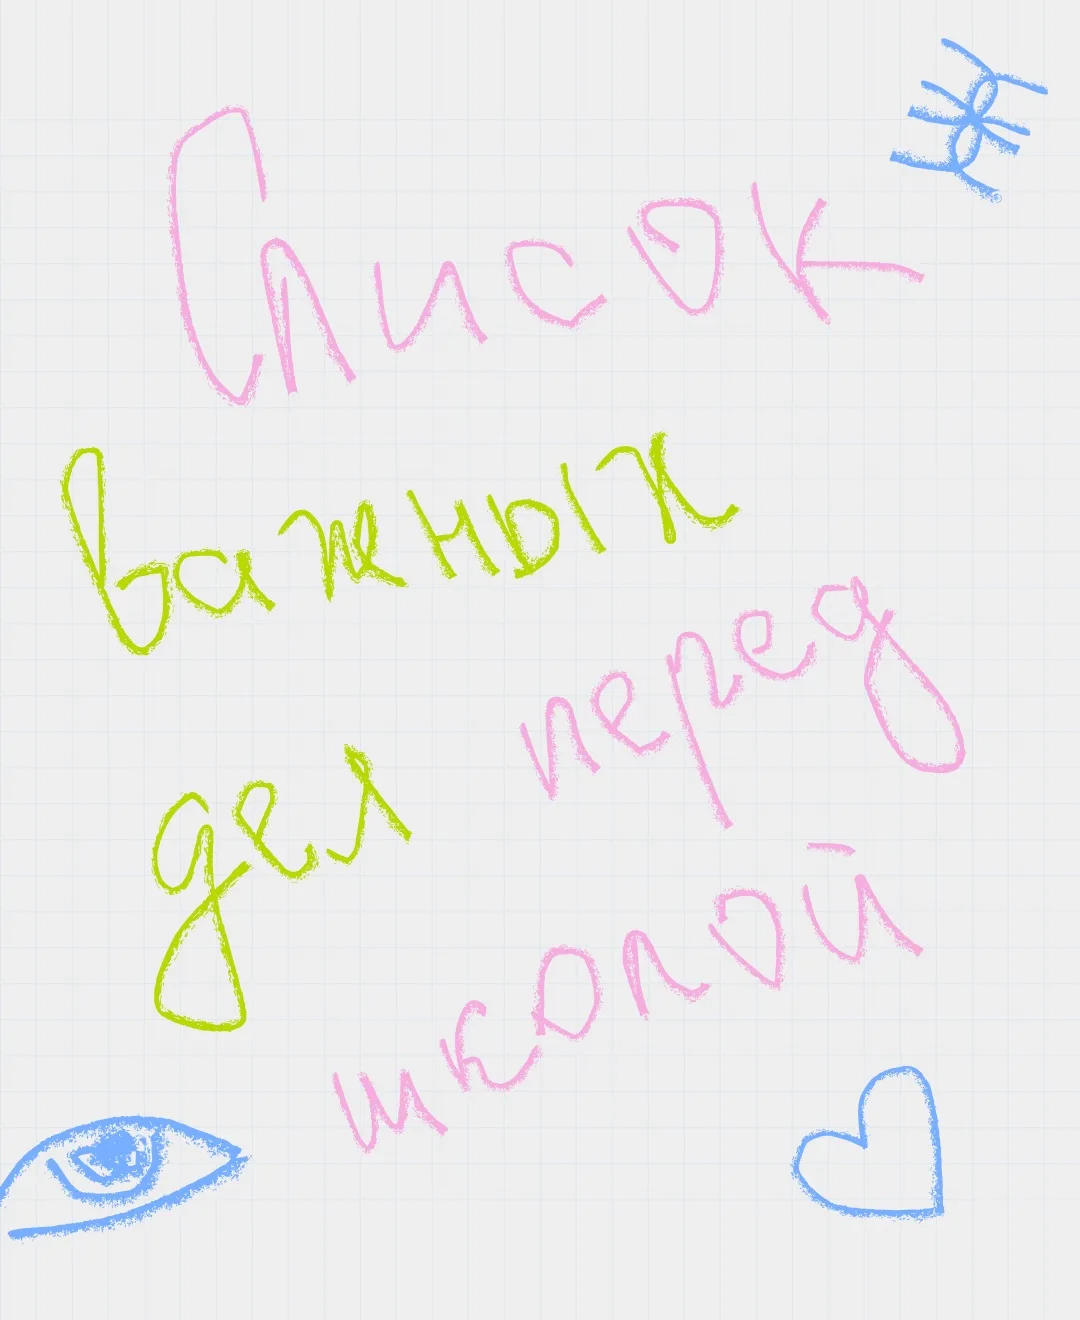 Список
важных
дел перед
школой